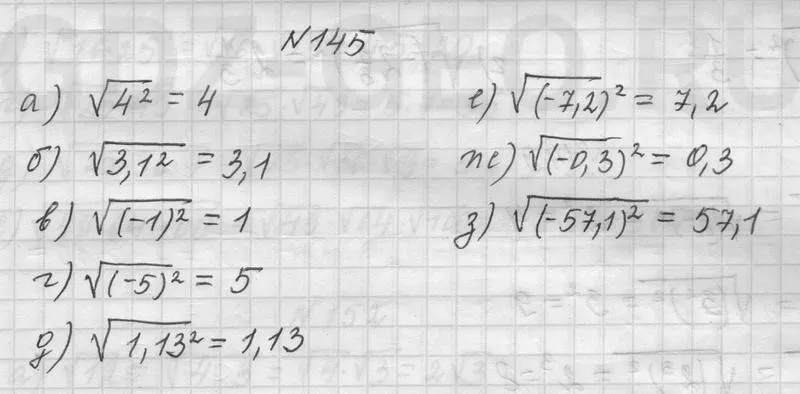 N145
а) √4² = 4
б) √3,1² = 3,1
в) √(-1)² = 1
г) √(-5)² = 5
д) √1,13² = 1,13
е) √(-7,2)² = 7,2
ж) √(-0,3)² = 0,3
з) √(-57,1)² = 57,1